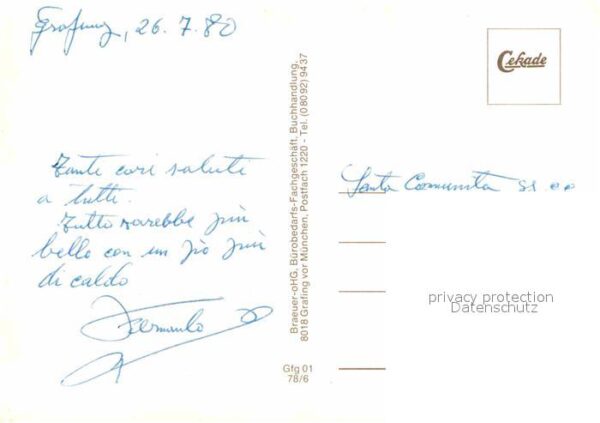 Grafing, 26.7.80
Cekade
Tanti cari saluti
a tutti.
Tutto sarebbe più
bello con un pò più
di caldo
Santa Comunità
Braeuer-oHG, Bürobedarfs-Fachgeschäft, Buchhandlung,
8018 Grafing vor München, Postfach 1220 - Tel. (08092) 9437
Gfg 01
78/6
privacy protection
Datenschutz